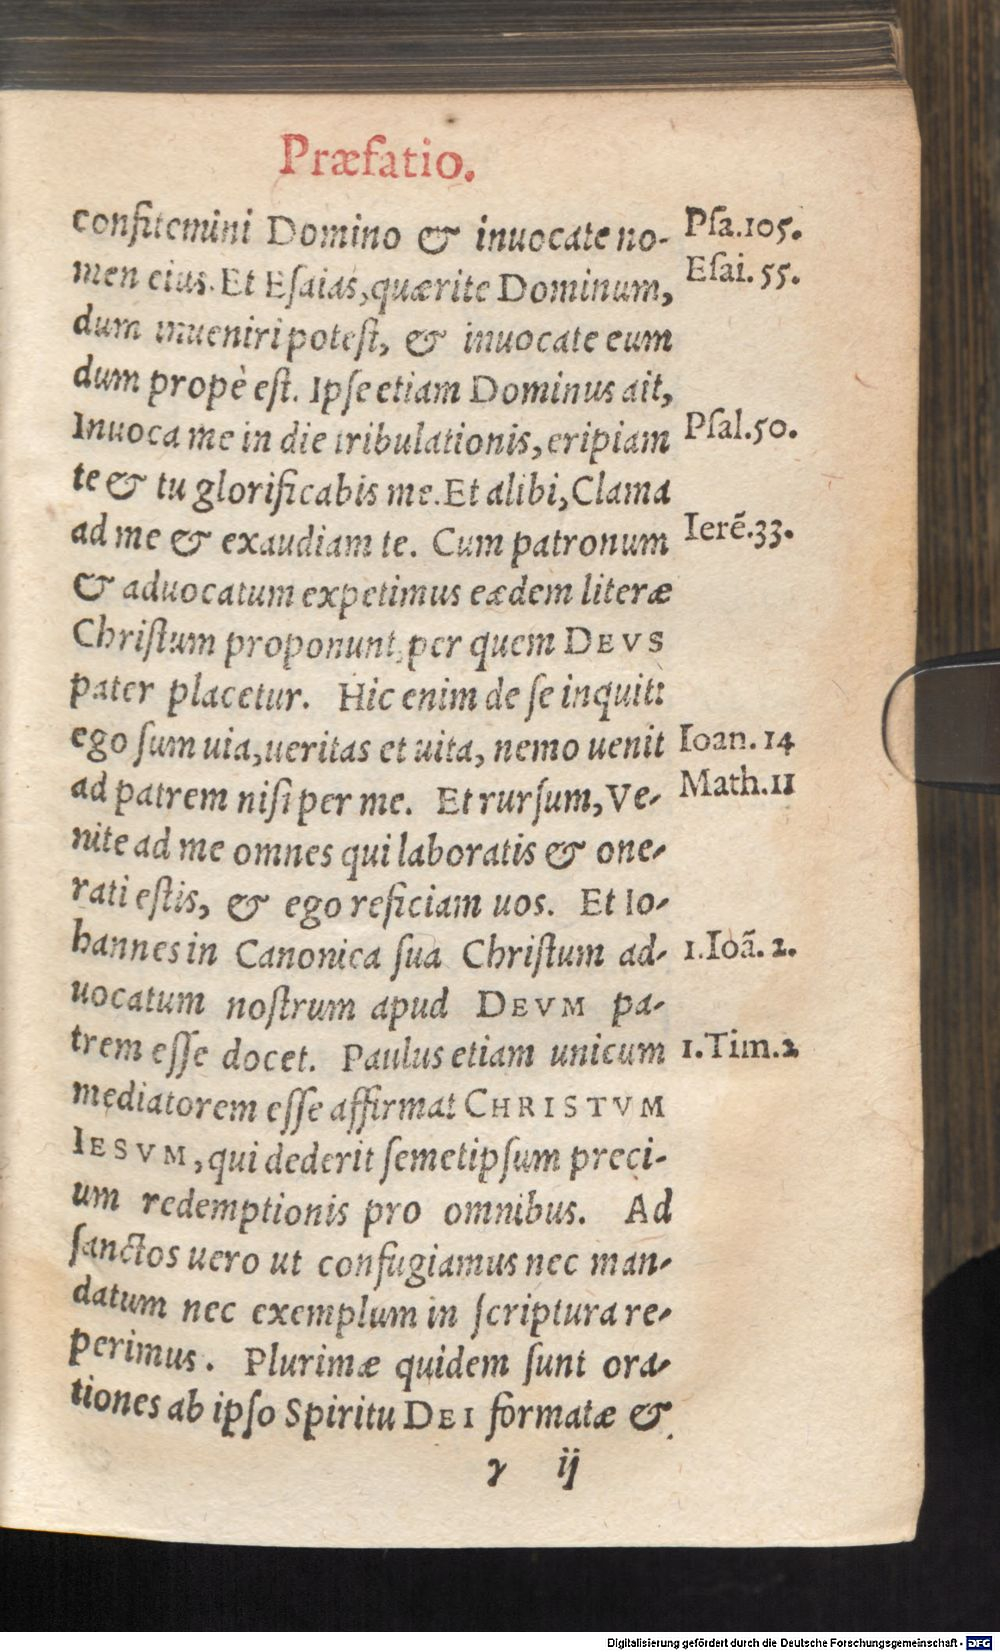 Præfatio.
confitemini Domino & inuocate no- Pſa.105.
men eius. Et Eſaias, quærite Dominum, Eſai. 55.
dum inueniri poteſt, & inuocate eum
dum propè eſt. Ipſe etiam Dominus ait,
Inuoca me in die tribulationis, eripiam Pſal.50.
te & tu glorificabis me. Et alibi, Clama
ad me & exaudiam te. Cum patronum Ierē.33.
& aduocatum expetimus eædem literæ
Chriſtum proponunt, per quem DEVS
pater placetur. Hic enim de ſe inquit:
ego ſum uia, ueritas et uita, nemo uenit Ioan. 14
ad patrem niſi per me. Et rurſum, Ve- Math.11
nite ad me omnes qui laboratis & one-
rati eſtis, & ego reficiam uos. Et Io-
hannes in Canonica ſua Chriſtum ad- 1.Ioā. 2.
uocatum noſtrum apud DEVM pa-
trem eſſe docet. Paulus etiam unicum 1.Tim.2
mediatorem eſſe affirmat CHRISTVM
IESVM, qui dederit ſemetipſum preci-
um redemptionis pro omnibus. Ad
ſanctos uero ut confugiamus nec man-
datum nec exemplum in ſcriptura re-
perimus. Plurimæ quidem ſunt ora-
tiones ab ipſo Spiritu DEI formatæ &
γ ij
Digitalisierung gefördert durch die Deutsche Forschungsgemeinschaft - DFG